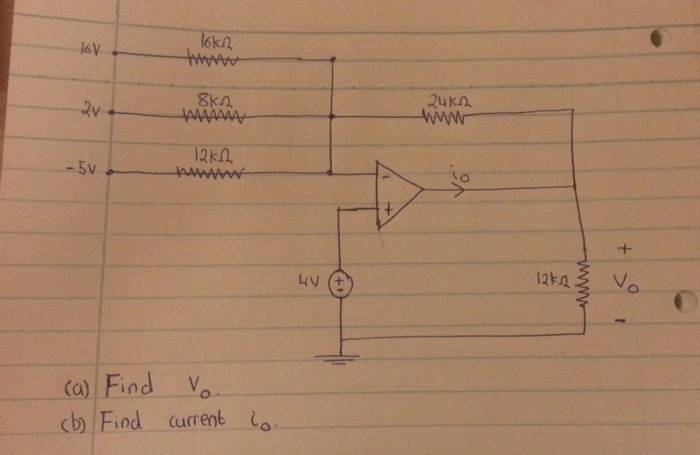 16V
16kΩ
2V
8kΩ
24kΩ
-5V
12kΩ
-
i₀
+
4V
+
-
12kΩ
+
V₀
-
(a) Find V₀.
(b) Find current i₀.